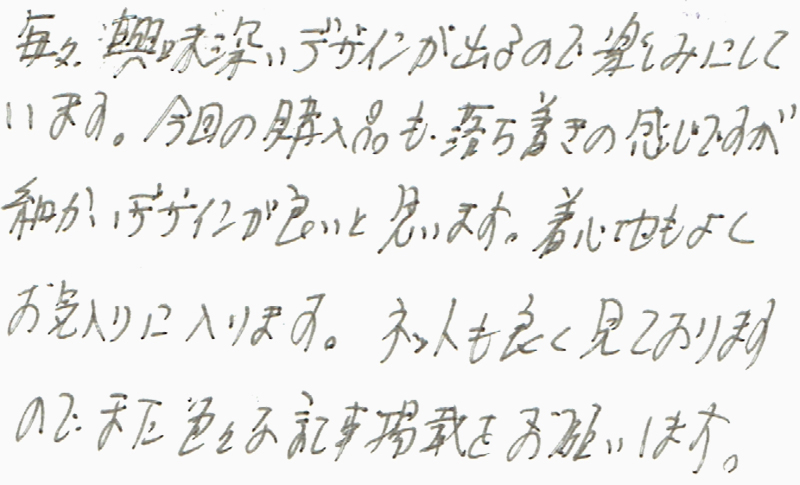 毎々、興味深いデザインが出るので楽しみにして
います。今回の購入品も落ち着きの感じですが
細かいデザインが良いと思います。着心地もよく
お気入りに入ります。ネットも良く見ております
のでまた色々な記事掲載をお願いします。